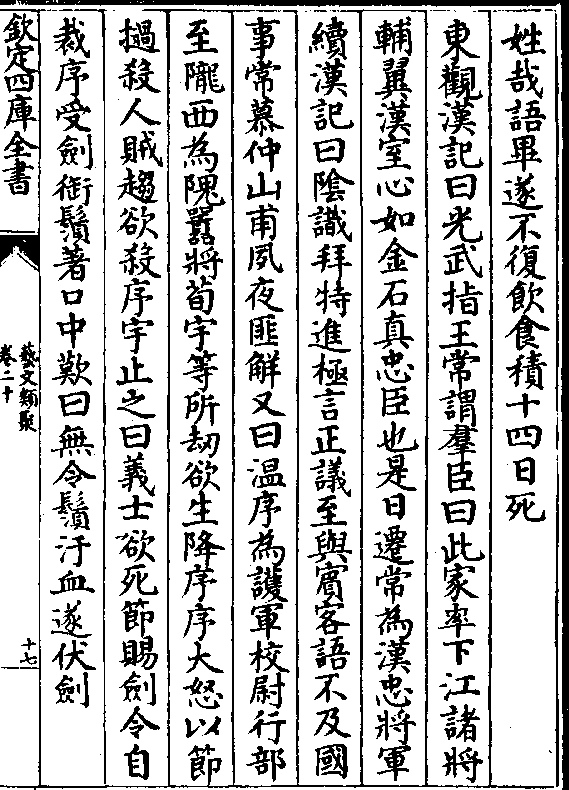 姓哉語畢遂不復飲食積十四日死
東觀漢記曰光武指王常謂羣臣曰此家率下江諸將
輔翼漢室心如金石真忠臣也是日遷常為漢忠將軍
續漢記曰陰識拜特進極言正議至與賓客語不及國
事常慕仲山甫夙夜匪解又曰温序為護軍校尉行部
至隴西為隗囂將荀宇等所刼欲生降序序大怒以節
撾殺人賊趨欲殺序宇止之曰義士欲死節賜劍令自
裁序受劍銜鬚著口中歎曰無令鬚汙血遂伏劍
欽定四庫全書
藝文類聚
卷二十
十七